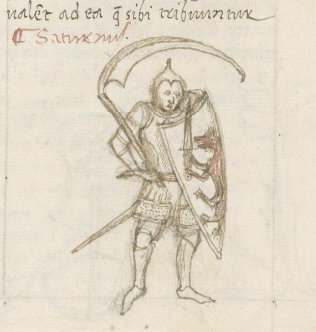 ualēt ad ea q̄ sibi tribuuntur
⸿ Saturnus.